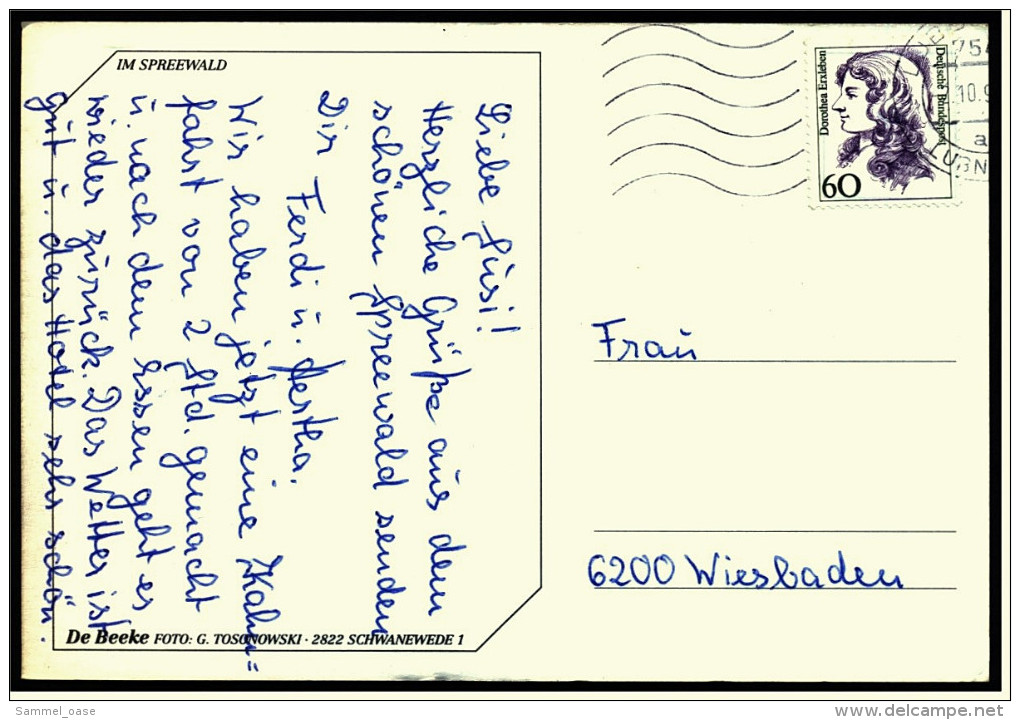 IM SPREEWALD
Liebe Susi!
Herzliche Grüße aus dem
schönen Spreewald senden
Dir
Ferdi u. Hertha.
Wir haben jetzt eine Kahn=
fahrt von 2 Std. gemacht
u. nach dem Essen geht es
wieder zurück. Das Wetter ist
gut u. das Hotel sehr schön.
De Beeke FOTO: G. TOSONOWSKI · 2822 SCHWANEWEDE 1
Dorothea Erxleben
Deutsche Bundespost
60
754
10.9
a
Frau
6200 Wiesbaden
Sammel_oase
delcampe.net